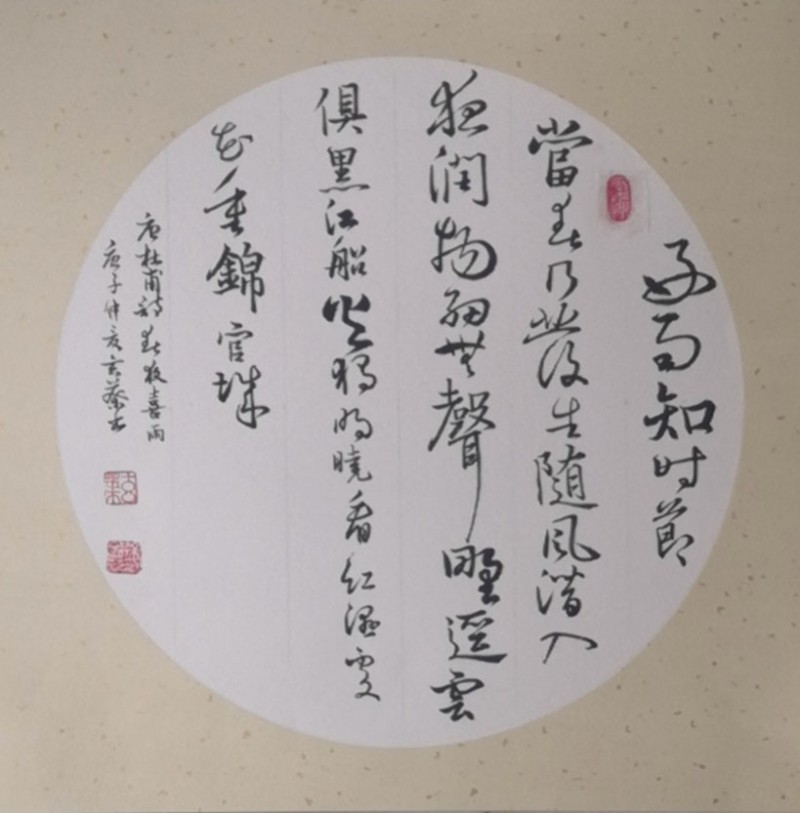 好雨知时節
當春乃發生随風潜入
夜潤物細無聲野逕雲
俱黑江船火獨明曉看红濕處
花重錦官城
唐杜甫詩春夜喜雨
庚子仲夏